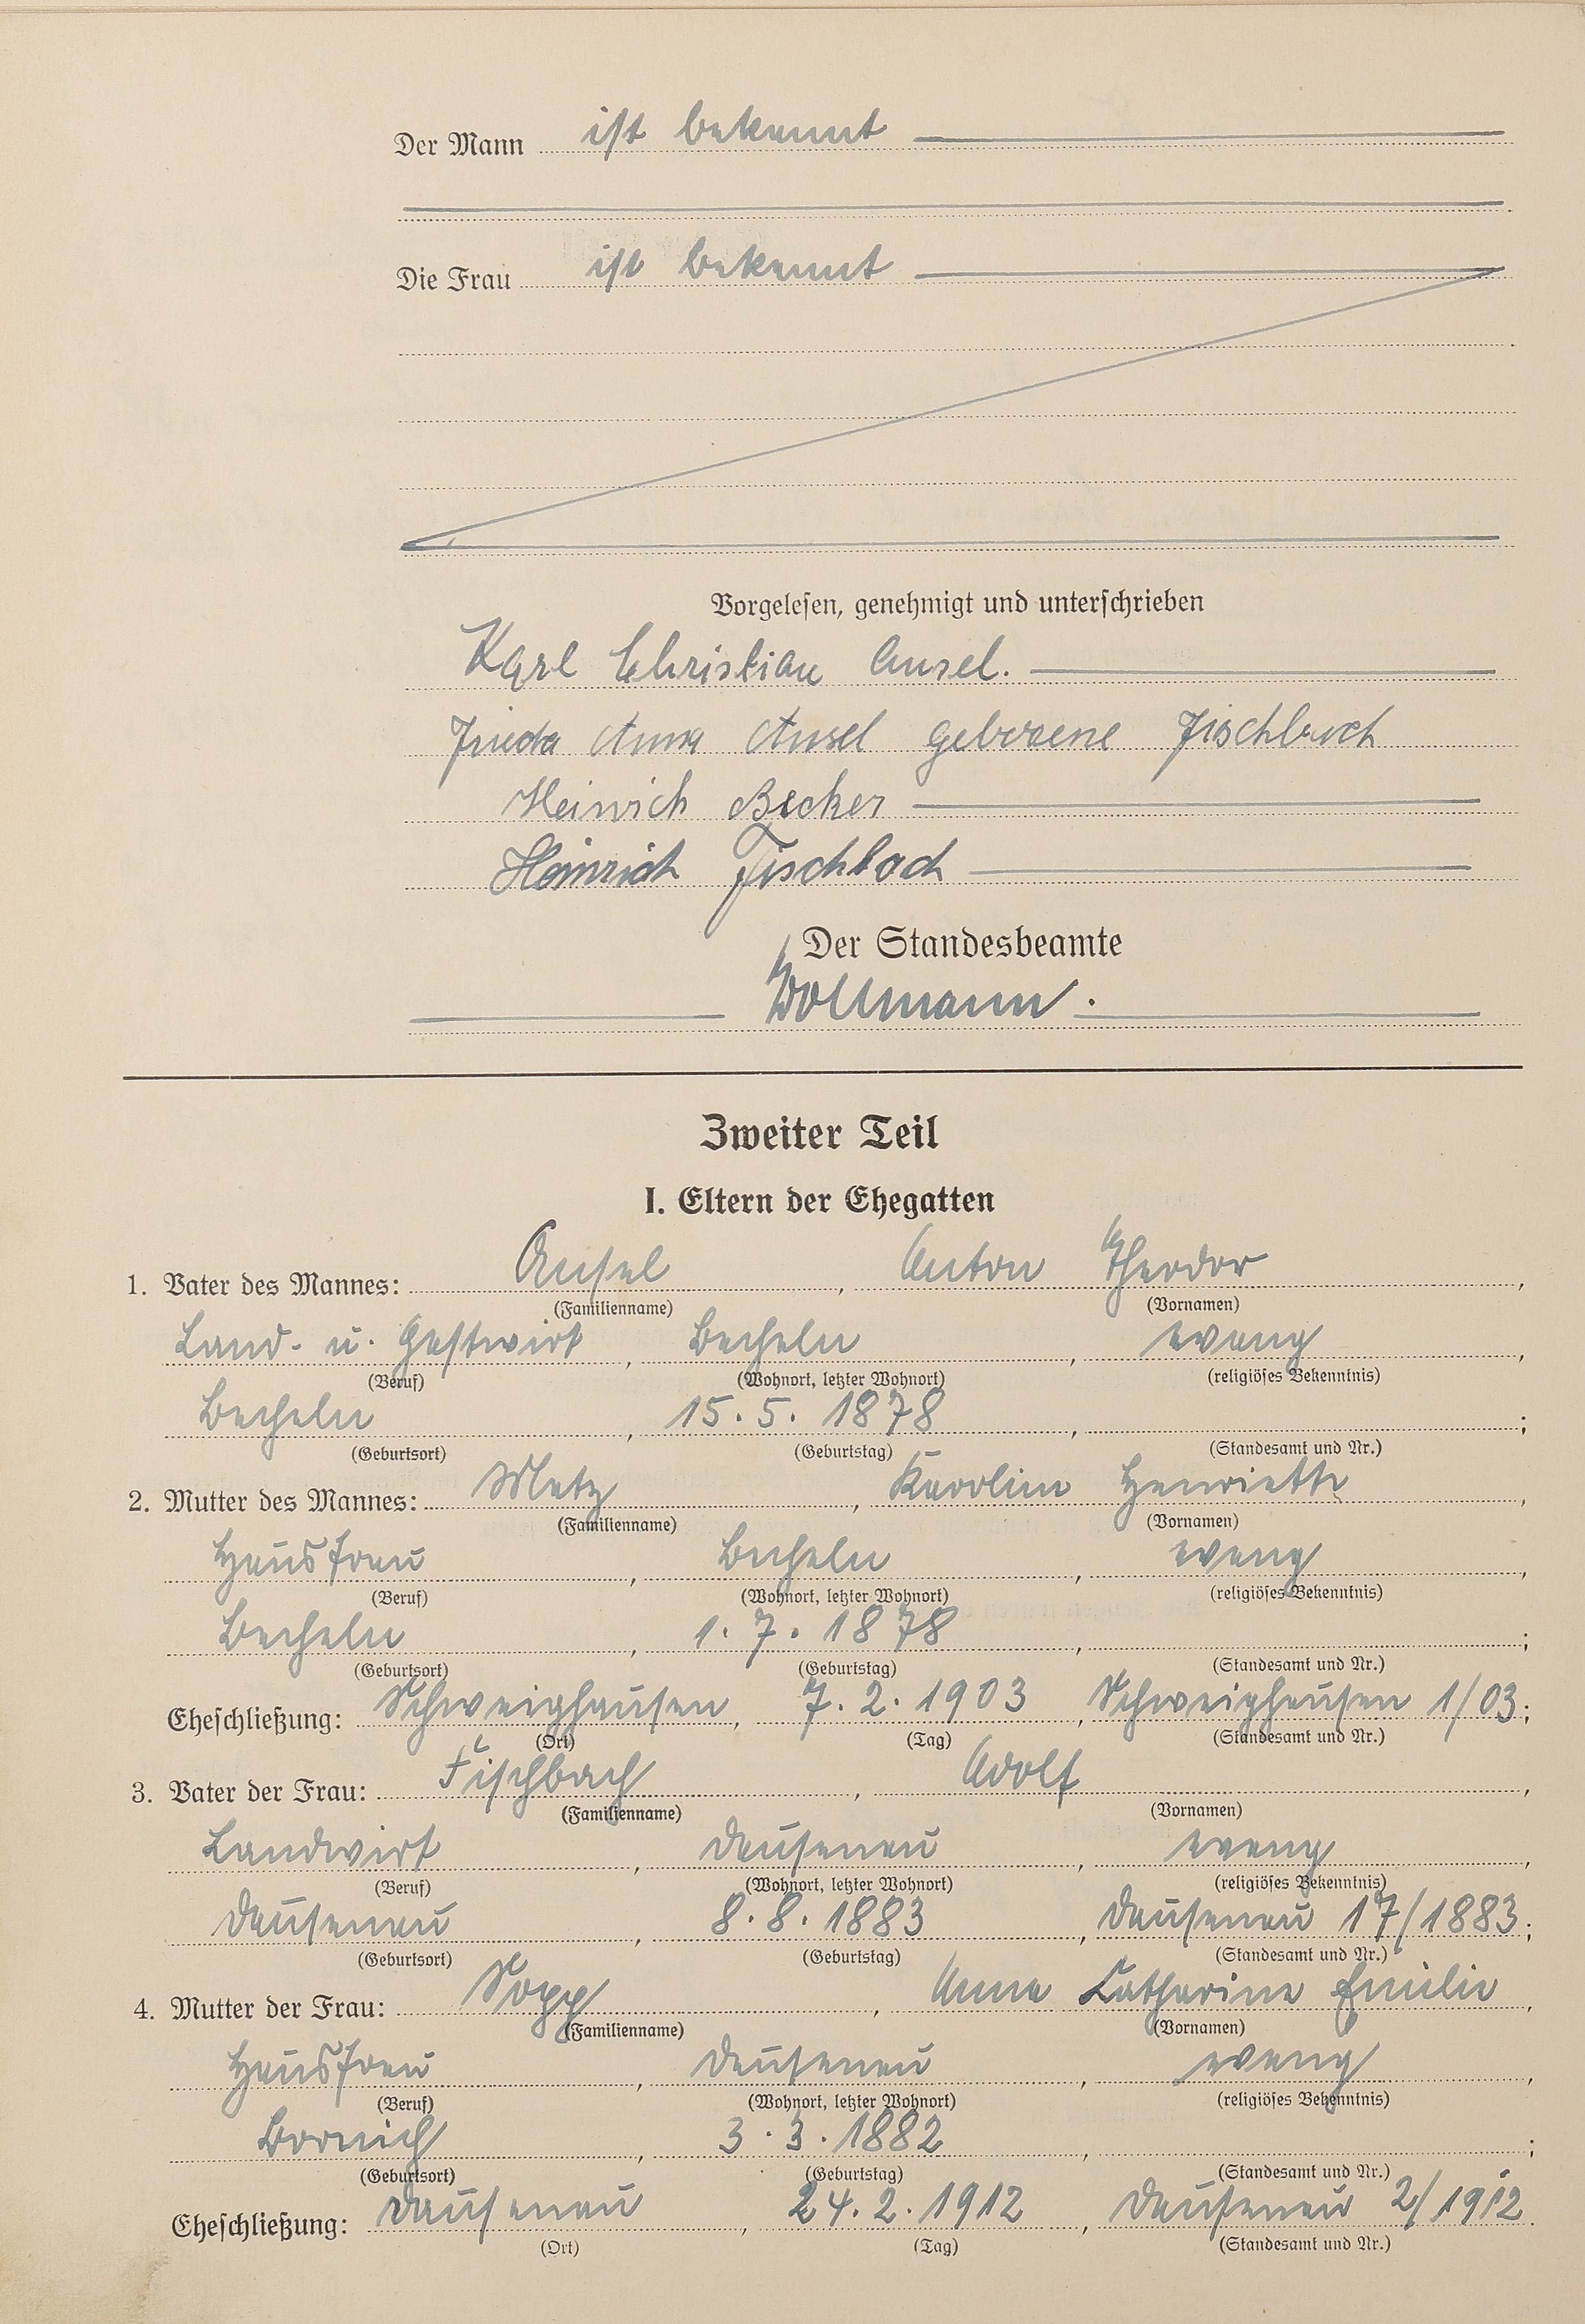 Der Mann ist bekannt
Die Frau ist bekannt
Vorgelesen, genehmigt und unterschrieben
Karl Christian Ansel.
Frieda Anna Ansel geborene Fischbach
Heinrich Becker
Heinrich Fischbach
Der Standesbeamte
Wollmann.
Zweiter Teil
I. Eltern der Ehegatten
1. Vater des Mannes: Ansel, Anton Theodor,
(Familienname) (Vornamen)
Land- u. Gastwirt, Becheln, evang,
(Beruf) (Wohnort, letzter Wohnort) (religiöses Bekenntnis)
Becheln, 15. 5. 1878, ;
(Geburtsort) (Geburtstag) (Standesamt und Nr.)
2. Mutter des Mannes: Metz, Karoline Henriette,
(Familienname) (Vornamen)
Hausfrau, Becheln, evang,
(Beruf) (Wohnort, letzter Wohnort) (religiöses Bekenntnis)
Becheln, 1. 7. 1878, ;
(Geburtsort) (Geburtstag) (Standesamt und Nr.)
Eheschließung: Schweighausen, 7. 2. 1903, Schweighausen 1/03;
(Ort) (Tag) (Standesamt und Nr.)
3. Vater der Frau: Fischbach, Adolf,
(Familienname) (Vornamen)
Landwirt, Dausenau, evang,
(Beruf) (Wohnort, letzter Wohnort) (religiöses Bekenntnis)
Dausenau, 8. 8. 1883, Dausenau 17/1883;
(Geburtsort) (Geburtstag) (Standesamt und Nr.)
4. Mutter der Frau: Sopp, Anna Katharine Emilie,
(Familienname) (Vornamen)
Hausfrau, Dausenau, evang,
(Beruf) (Wohnort, letzter Wohnort) (religiöses Bekenntnis)
Bornich, 3. 3. 1882, ;
(Geburtsort) (Geburtstag) (Standesamt und Nr.)
Eheschließung: Dausenau, 24. 2. 1912, Dausenau 2/1912.
(Ort) (Tag) (Standesamt und Nr.)